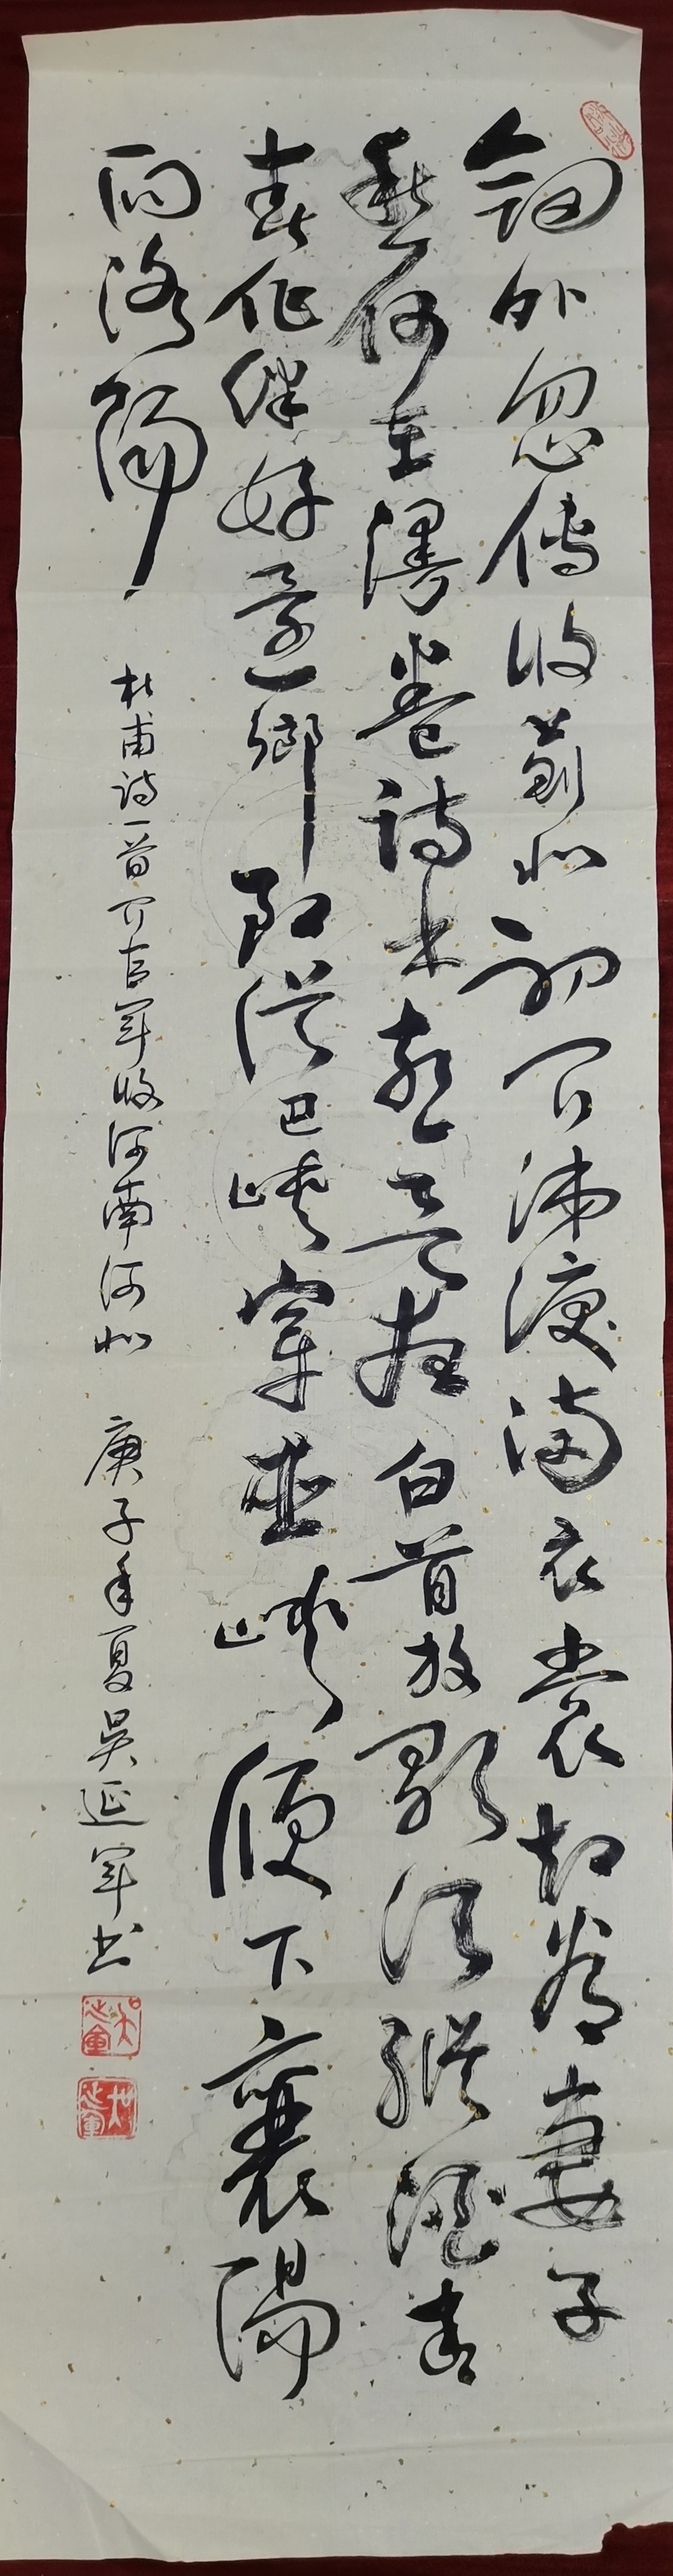 劍外忽傳收薊北初聞涕淚滿衣裳却看妻子
愁何在漫卷詩書喜欲狂白首放歌須縱酒青
春作伴好還鄉即從巴峽穿巫峽便下襄陽
向洛陽
杜甫詩一首聞官軍收河南河北 庚子年夏吳延軍书